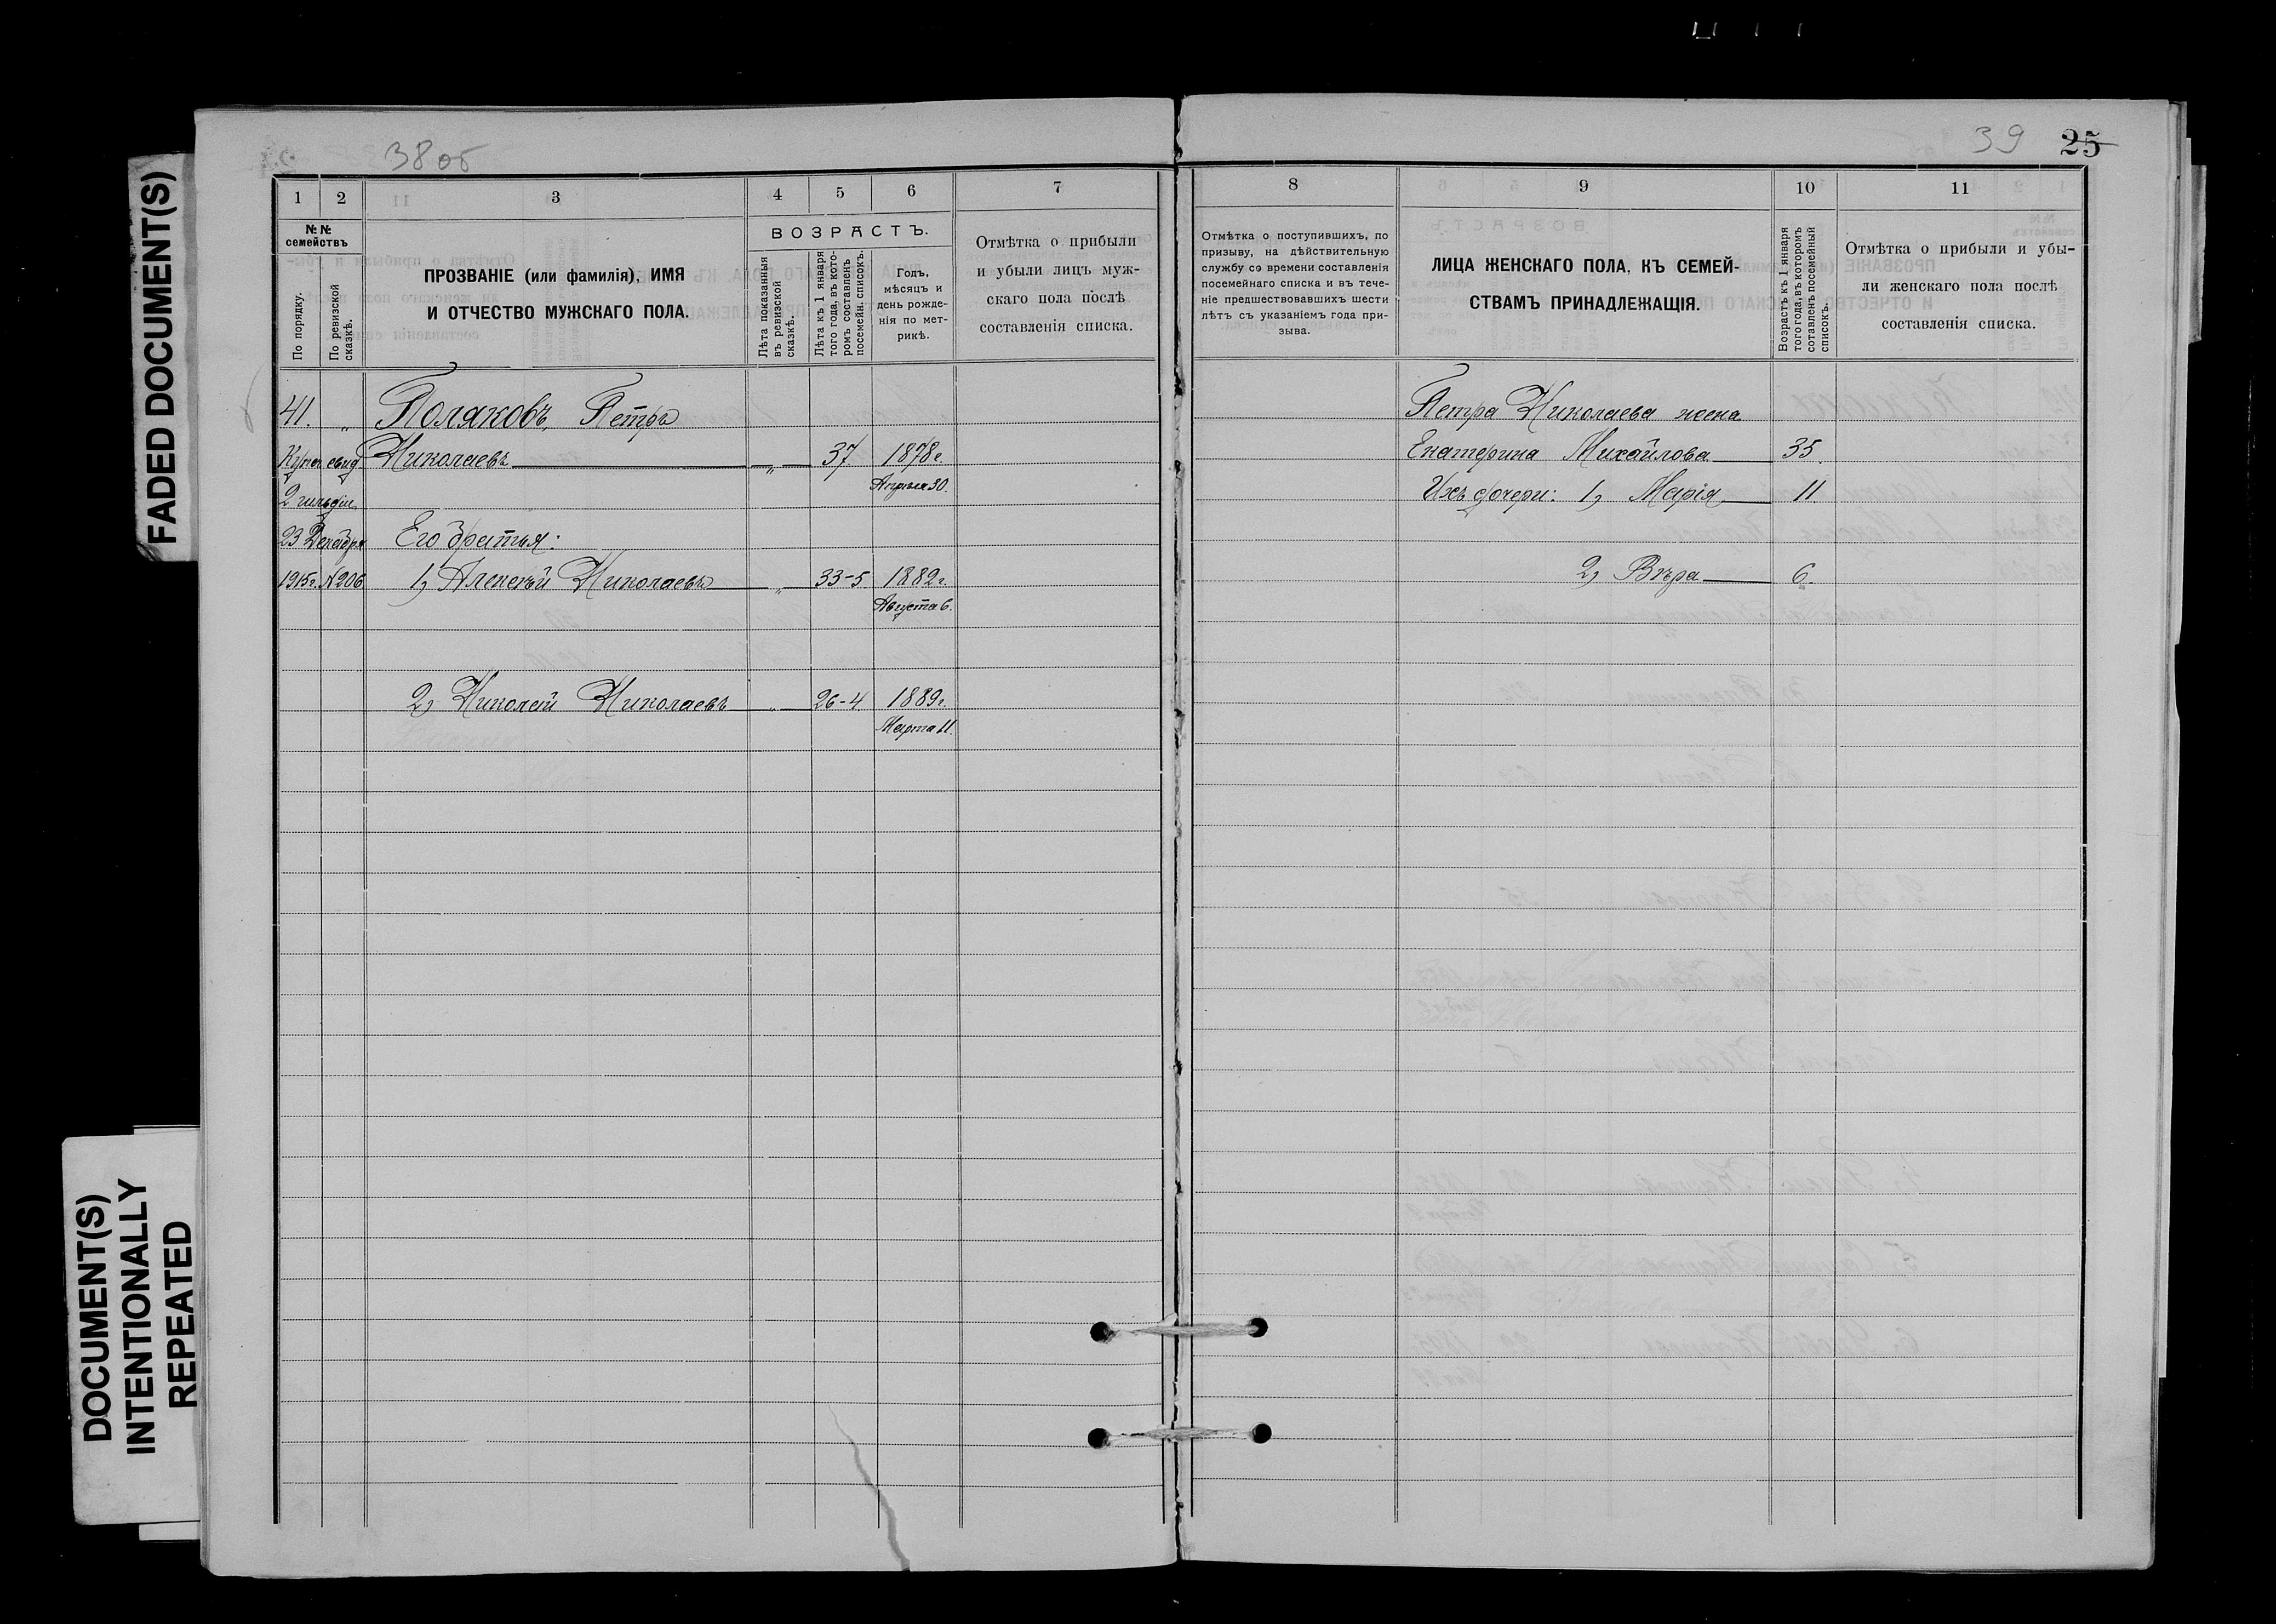 FADED DOCUMENT(S)
DOCUMENT(S)
INTENTIONALLY
REPEATED
38об
1 2 3 4 5 6 7
№№
семействъ
По порядку.
По ревизской
сказкѣ.
ПРОЗВАНІЕ (или фамилія), ИМЯ
И ОТЧЕСТВО МУЖСКАГО ПОЛА.
ВОЗРАСТЪ.
Лѣта показанныя
въ ревизской
сказкѣ.
Лѣта къ 1 января
того года, въ кото-
ромъ составленъ
посемейн. списокъ.
Годъ,
мѣсяцъ и
день рожде-
нія по мет-
рикѣ.
Отмѣтка о прибыли
и убыли лицъ муж-
скаго пола послѣ
составленія списка.
41. „ Поляковъ, Петръ
Купеч свид Николаевъ „ 37 1878г.
2 гильдіи Апрѣля 30.
23 Декабря Его братья:
1915г. №206 1, Алексѣй Николаевъ „ 33-5 1882г.
Августа 6.
2, Николай Николаевъ „ 26-4 1889г.
Марта 11.
39 25
8 9 10 11
Отмѣтка о поступившихъ, по
призыву, на дѣйствительную
службу со времени составленія
посемейнаго списка и въ тече-
ніе предшествовавшихъ шести
лѣтъ съ указаніемъ года при-
зыва.
ЛИЦА ЖЕНСКАГО ПОЛА, КЪ СЕМЕЙ-
СТВАМЪ ПРИНАДЛЕЖАЩІЯ.
Возрастъ къ 1 января
того года, въ которомъ
сотавленъ посемейный
списокъ.
Отмѣтка о прибыли и убы-
ли женскаго пола послѣ
составленія списка.
Петра Николаева жена
Екатерина Михайлова 35.
Ихъ дочери: 1, Марія 11
2, Вѣра 6.